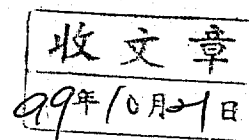 收文章
99年10月21日